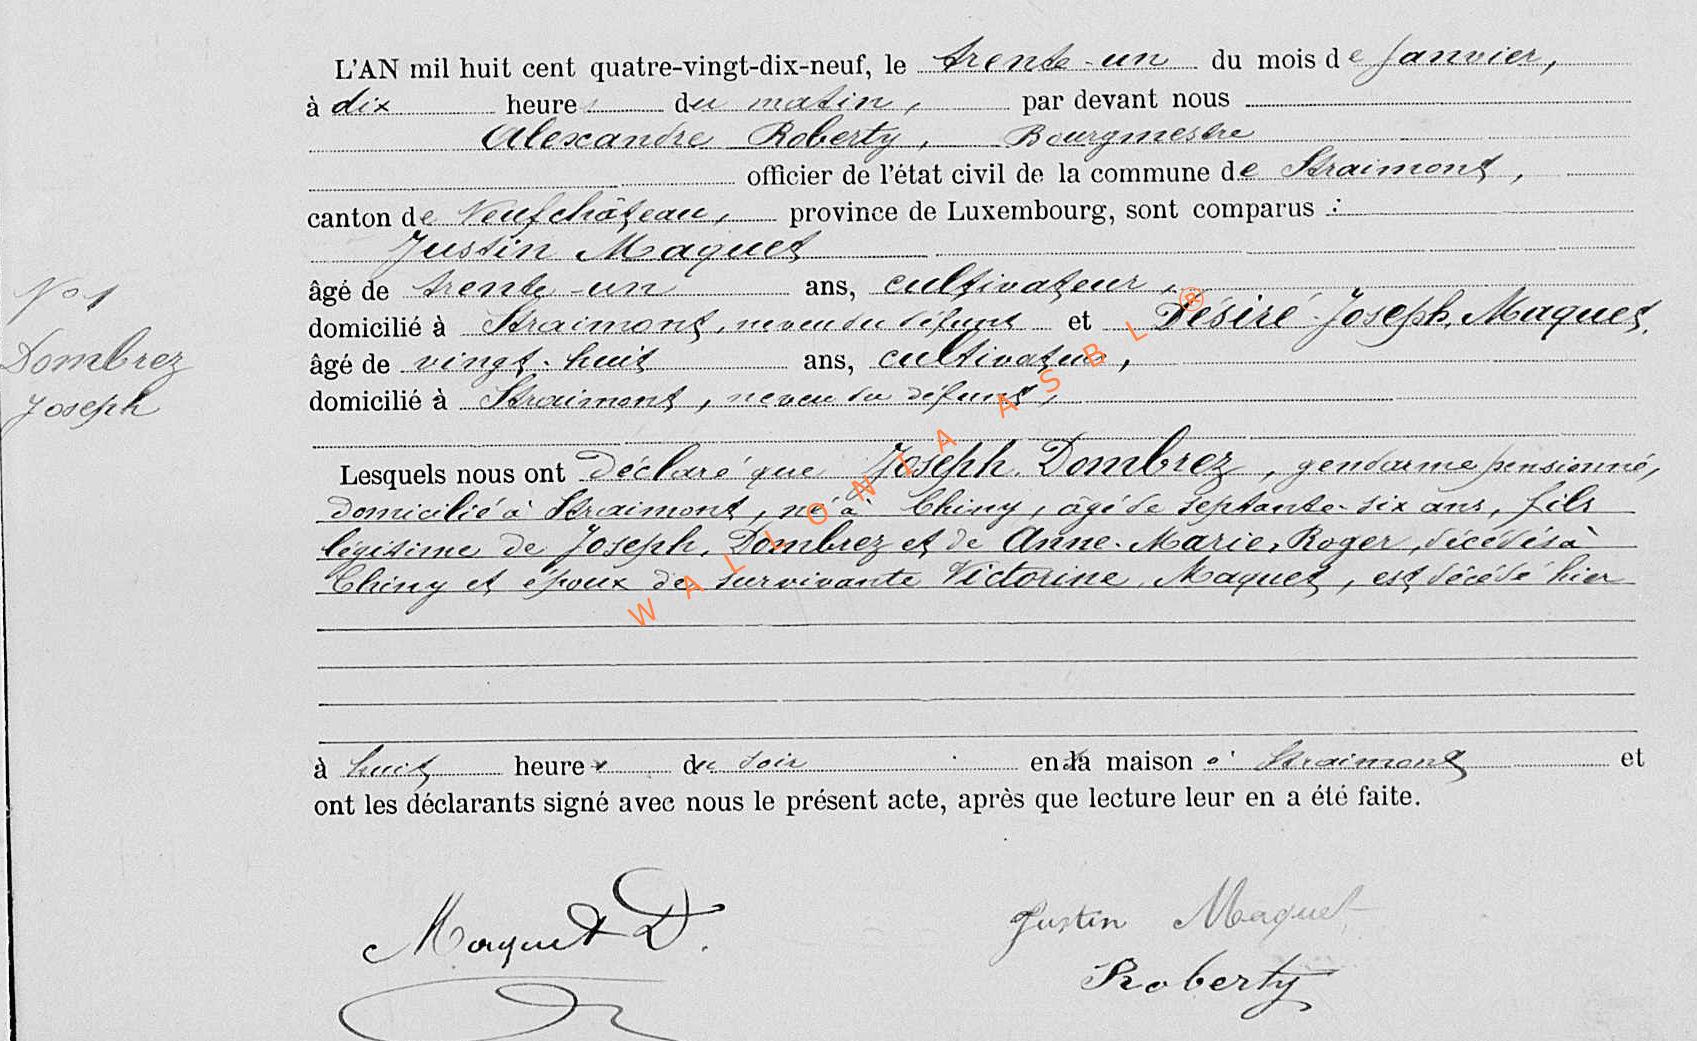 L'AN mil huit cent quatre-vingt-dix-neuf, le trente-un du mois de Janvier,
à dix heures du matin, par devant nous
Alexandre Roberty, Bourgmestre
officier de l'état civil de la commune de Straimont,
canton de Neufchâteau, province de Luxembourg, sont comparus :
Justin Maquet
âgé de trente-un ans, cultivateur,
domicilié à Straimont, neveu du défunt et Désiré Joseph Maquet,
âgé de vingt-huit ans, cultivateur,
domicilié à Straimont, neveu du défunt,
N° 1
Dombrez
Joseph
Lesquels nous ont déclaré que Joseph Dombrez, gendarme pensionné,
domicilié à Straimont, né à Chiny, âgé de septante-six ans, fils
légitime de Joseph Dombrez et de Anne-Marie Roger, décédés à
Chiny et époux de survivante Victorine Maquet, est décédé hier
à huit heures du soir en sa maison à Straimont et
ont les déclarants signé avec nous le présent acte, après que lecture leur en a été faite.
Maquet D.
Justin Maquet
Roberty
WALLONIA ASBL ®